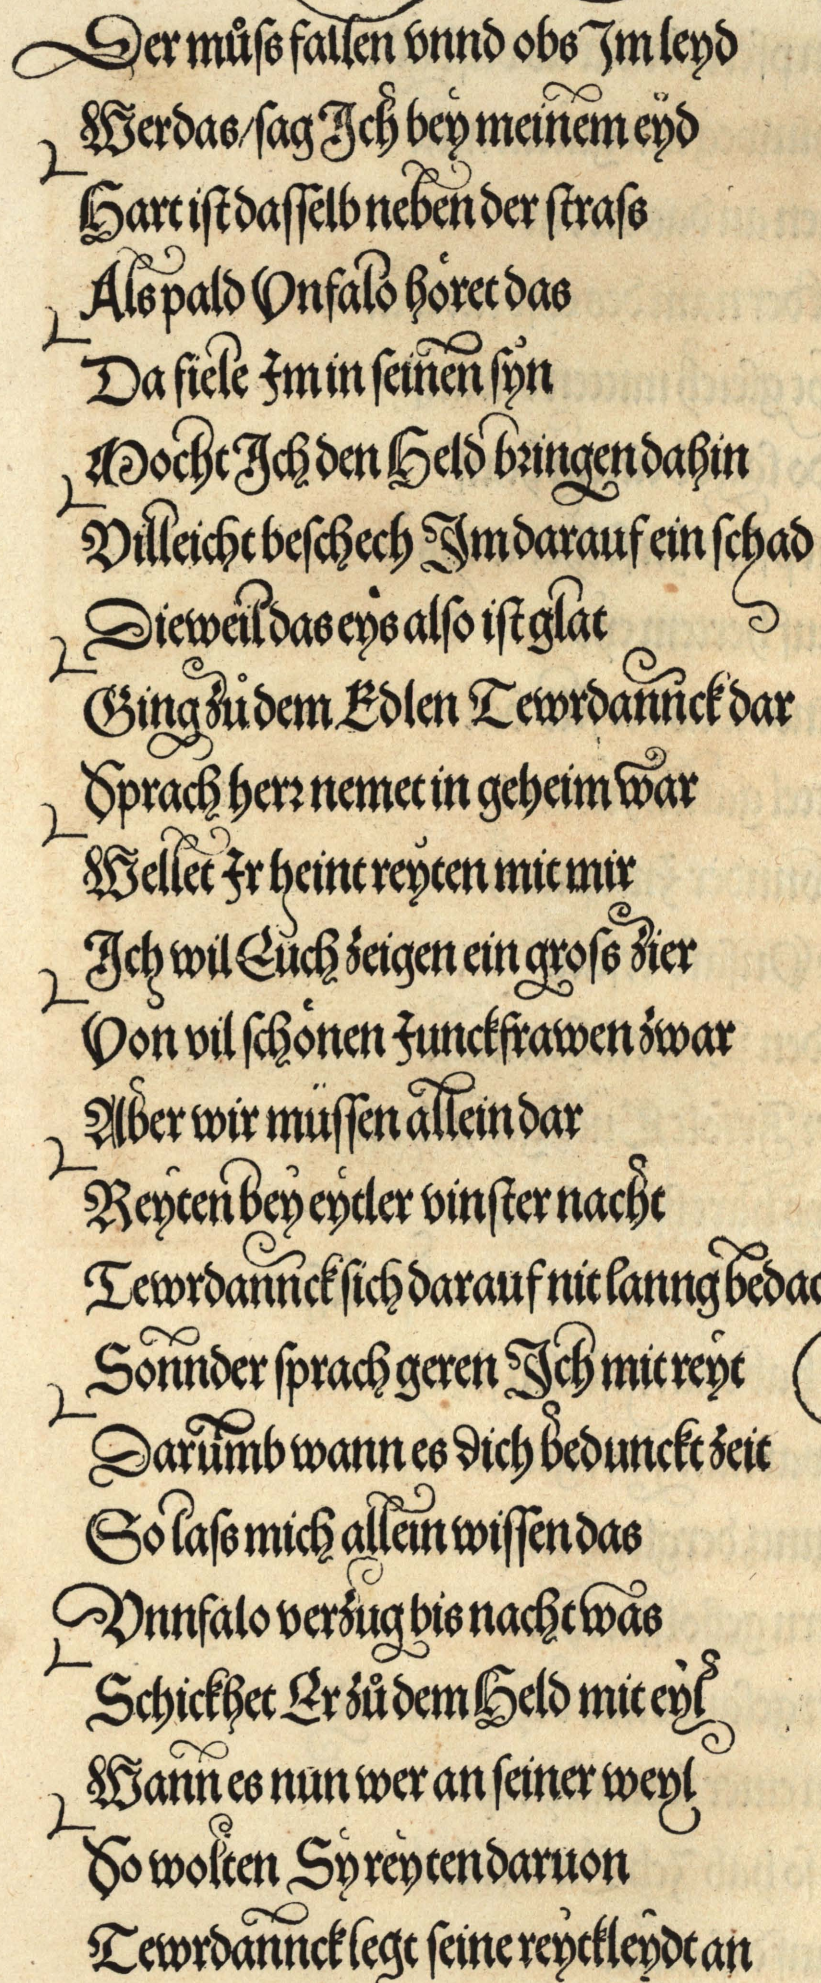 Der můſs fallen vnnd obs Im leyd
Wer das/ ſag Ich bey meinem eyd
Hart iſt daſſelb neben der ſtraſs
Als pald Vnfalo höret das
Da fiele Im in ſeinen ſyn
Mocht Ich den Held bringen dahin
Villeicht beſchech Im darauf ein ſchad
Dieweil das eys alſo iſt glat
Ging zů dem Edlen Tewrdannck dar
Sprach herr nemet in geheim war
Wellet Ir heint reyten mit mir
Ich wil Euch zeigen ein groſs zier
Von vil ſchönen Junckfrawen zwar
Aber wir müſſen allein dar
Reyten bey eytler vinſter nacht
Tewrdannck ſich darauf nit lanng bedac
Sonnder ſprach geren Ich mit reyt
Darumb wann es dich bedunckt zeit
So laſs mich allein wiſſen das
Vnnfalo verzug bis nacht was
Schickhet Er zů dem Held mit eyl
Wann es nun wer an ſeiner weyl
So wolten Sy reyten daruon
Tewrdannck legt ſeine reytkleydt an